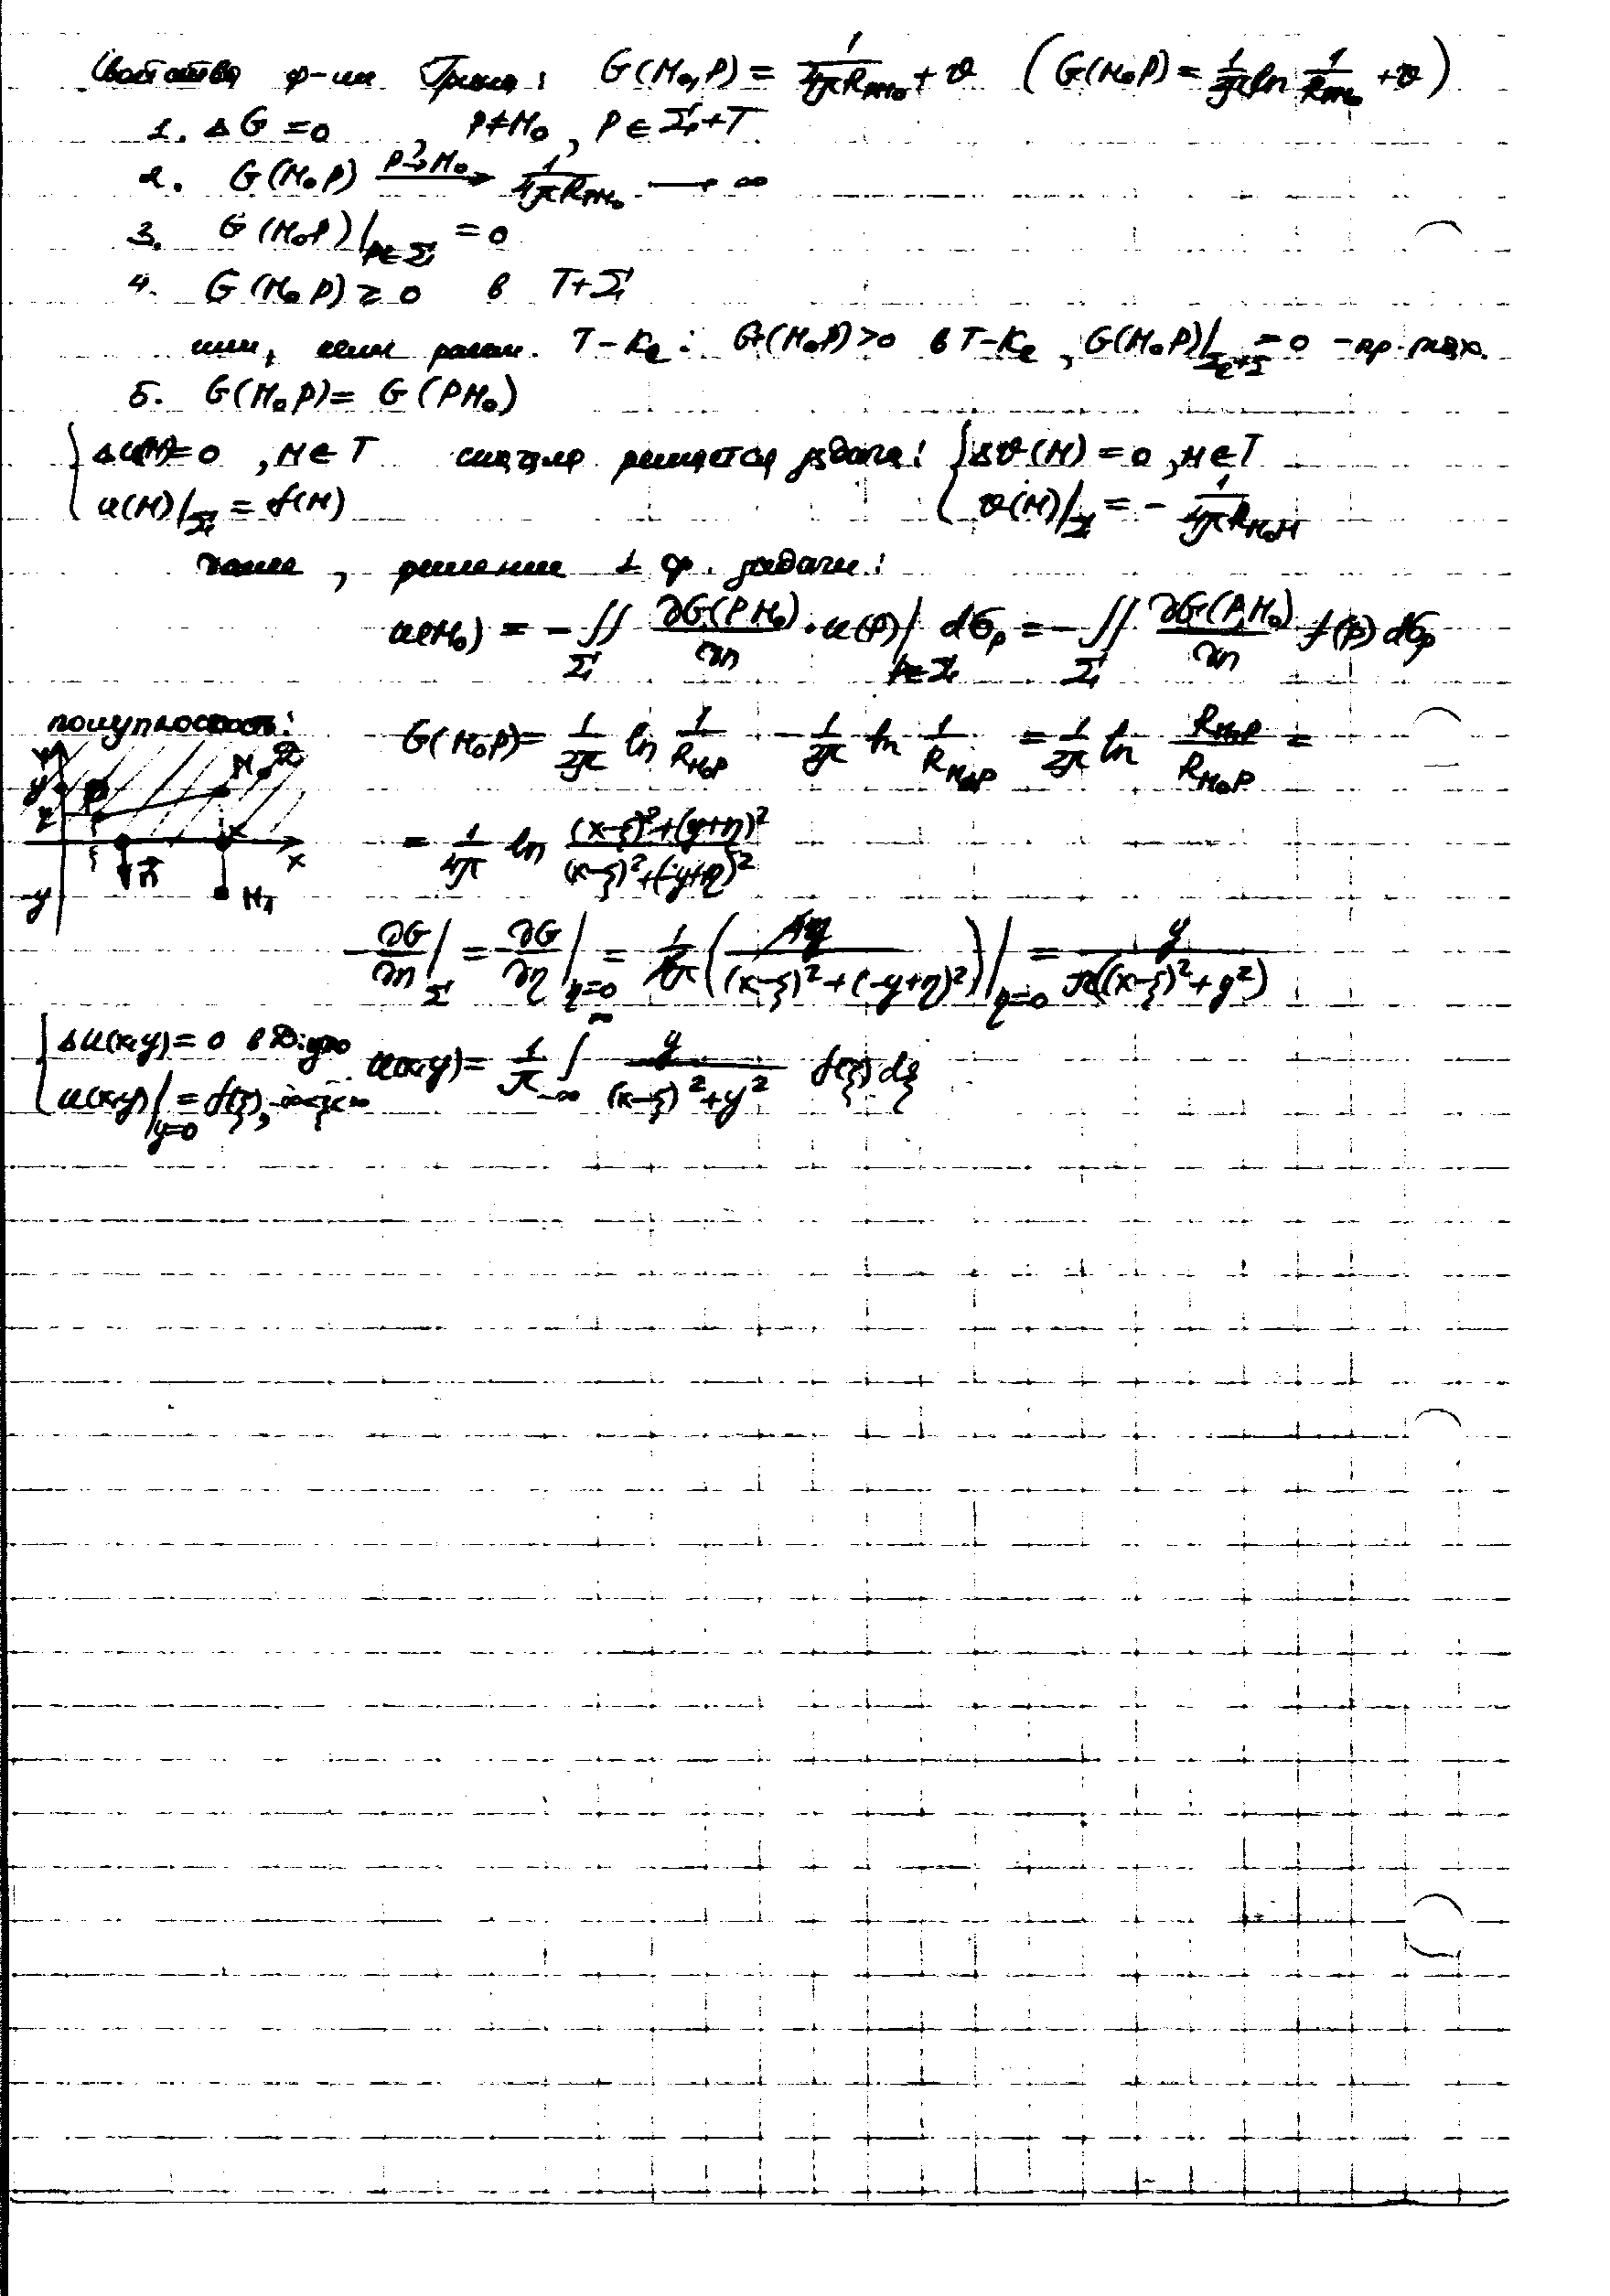 Свойства ф-ии Грина: G(M₀,P) = 1/(4πR_PM₀) + v (G(M₀P) = 1/(2π) ln 1/R_PM₀ + v)
1. ΔG = 0, P≠M₀, P ∈ Σ+T
2. G(M₀P) P→M₀ → 1/(4πR_PM₀) → ∞
3. G(M₀P)|_{P∈Σ} = 0
4. G(M₀P) ≥ 0 в T+Σ
или, если T−K_ε: G(M₀P)>0 в T−K_ε, G(M₀P)| = 0 – пр. max.
5. G(M₀P) = G(PM₀)
{ Δu(M)=0, M∈T сначала решается задача: { Δv(M)=0, M∈T
u(M)|_Σ = f(M) v(M)|_Σ = − 1/(4πR_M₀M)
, решение 1 ф. задачи:
u(M₀) = −∬_Σ ∂G(PM₀)/∂n · u(P)|_{P∈Σ} dσ_P = −∬_Σ ∂G(P,M₀)/∂n f(P) dσ_P
полуплоскость: G(M₀P) = 1/(2π) ln 1/R_M₀P − 1/(2π) ln 1/R_M₁P = 1/(2π) ln R_M₁P/R_M₀P =
y M D
x
ξ n⃗ x
−y M₁
= 1/(4π) ln ((x−ξ)²+(y+η)²)/((x−ξ)²+(−y+η)²)
−∂G/∂n|_Σ = ∂G/∂η|_{η=0} = 1/4π (4y/((x−ξ)²+(−y+η)²))|_{η=0} = y/(π((x−ξ)²+y²))
{ Δu(x,y)=0 в D: y>0 u(x,y) = 1/π ∫_{−∞}^{∞} y/((x−ξ)²+y²) f(ξ) dξ
u(x,y)|_{y=0} = f(ξ), −∞<ξ<∞